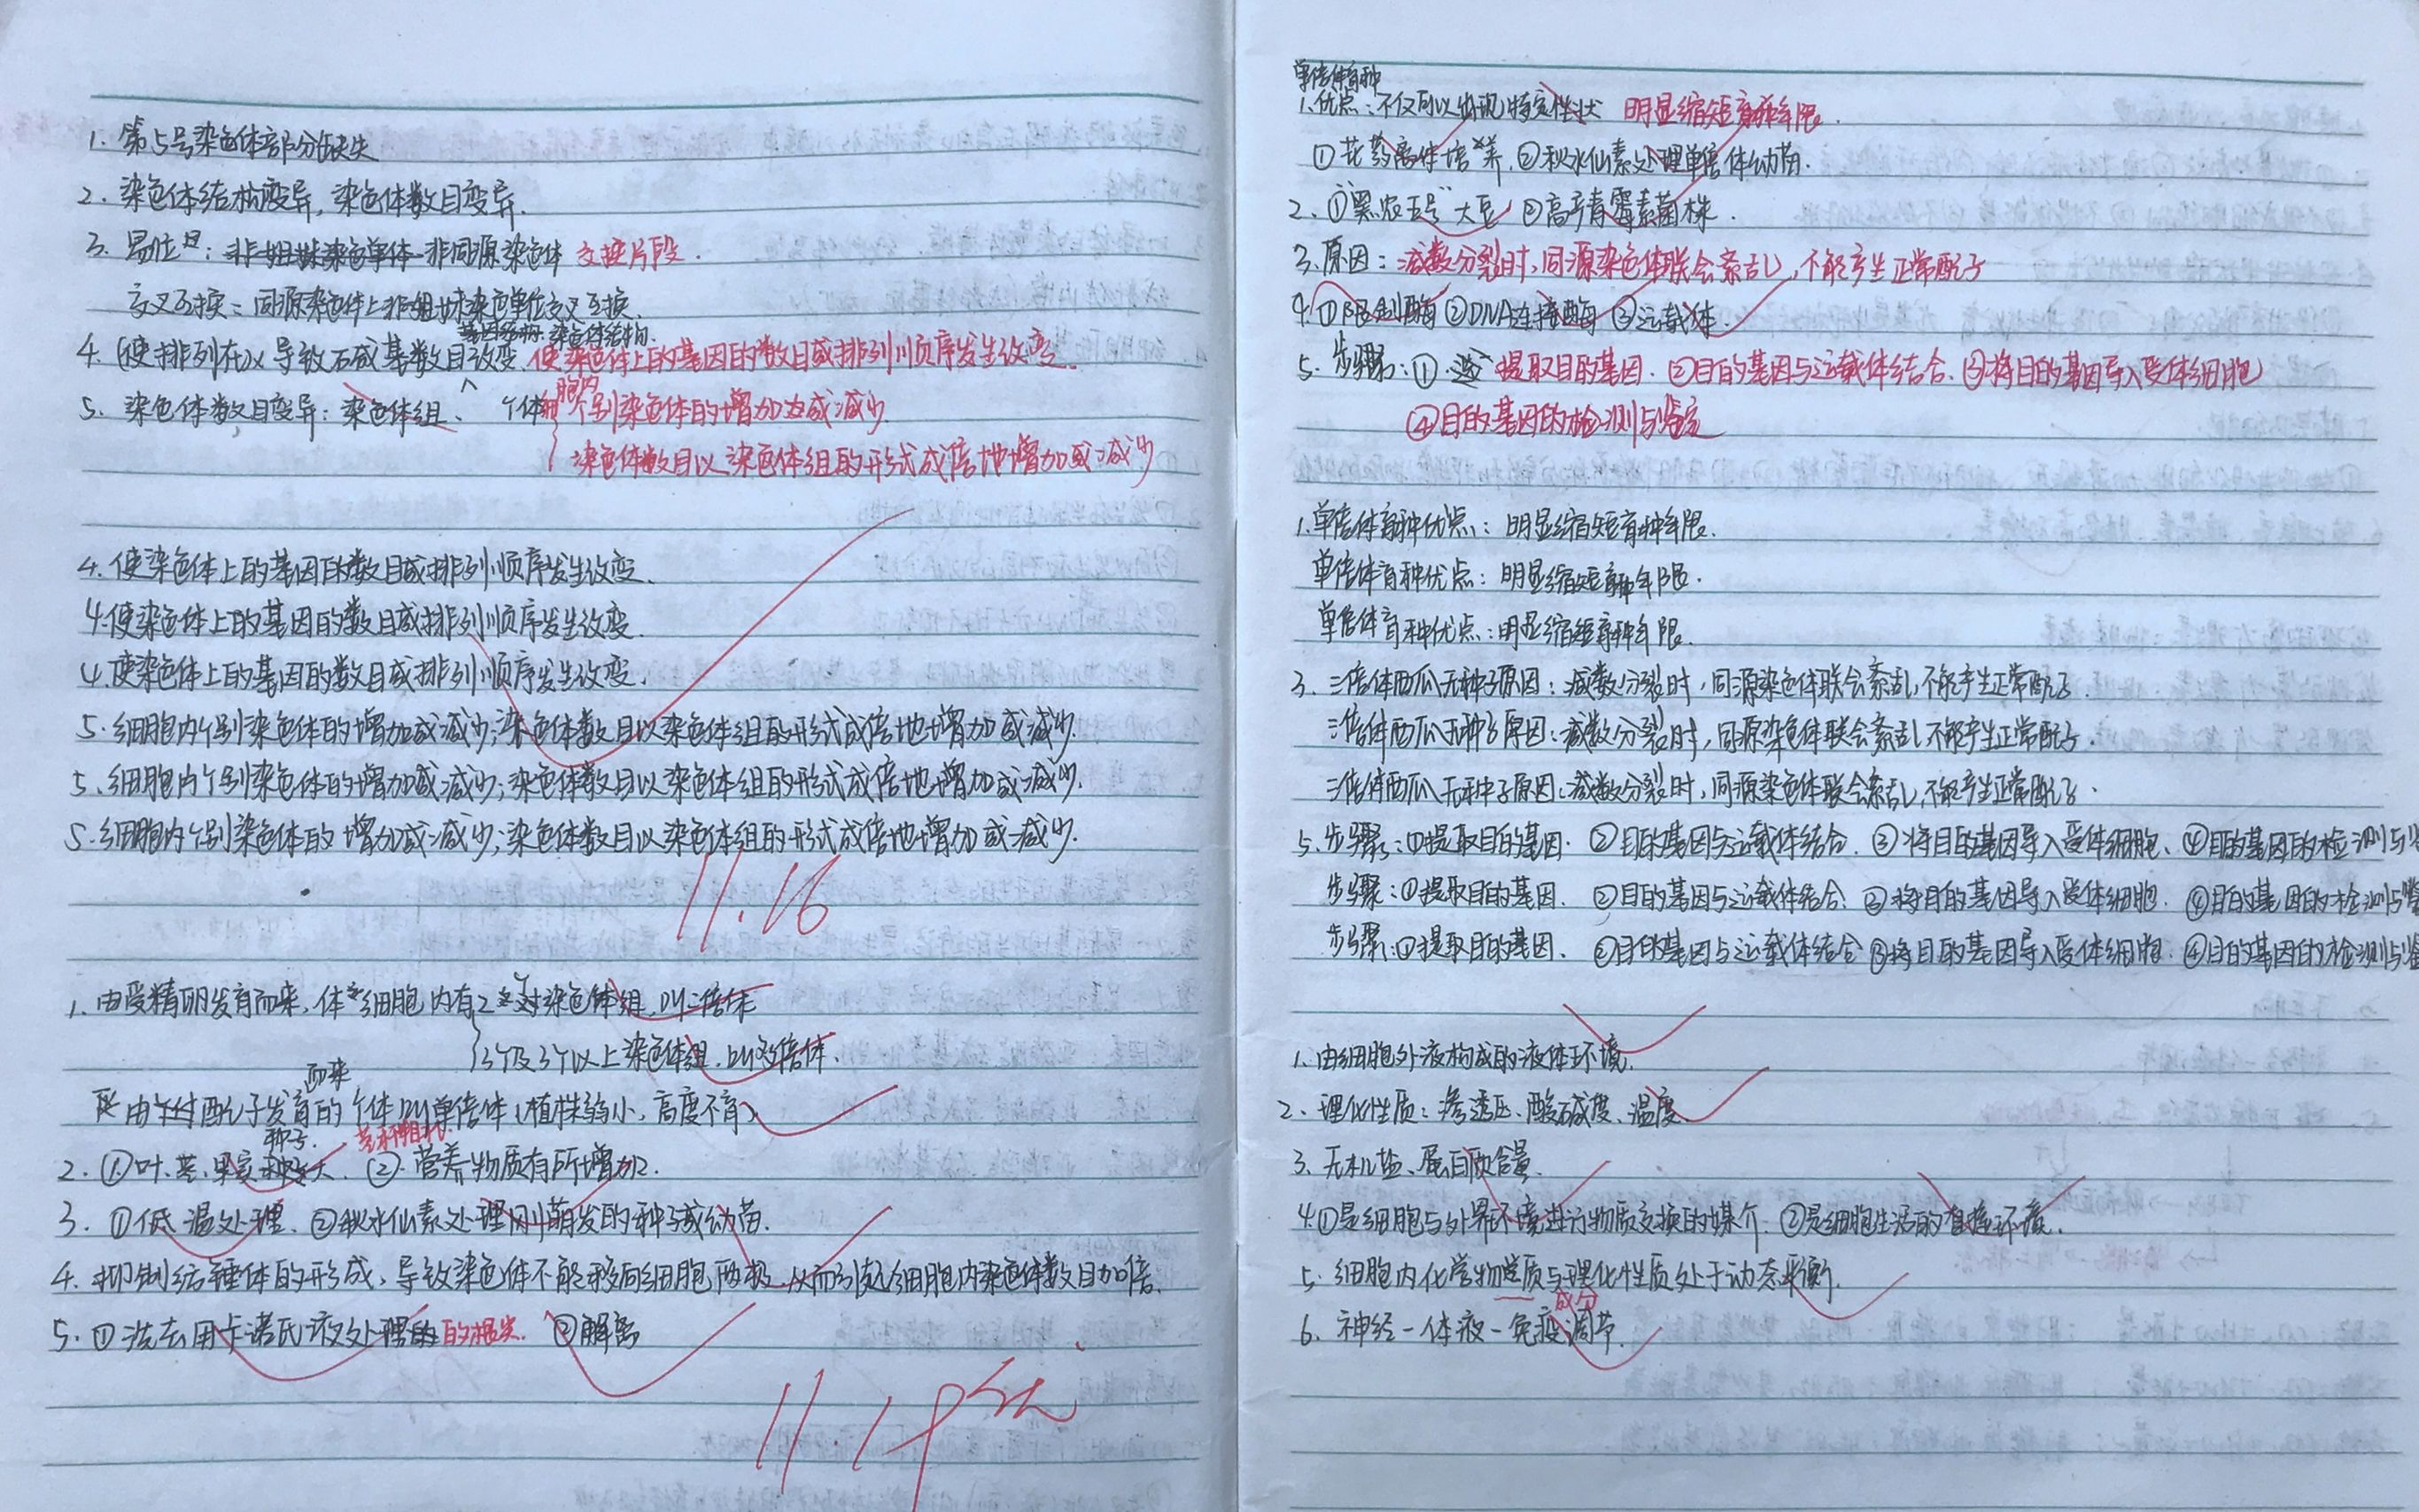 1. 第5号染色体部分缺失
2. 染色体结构变异,染色体数目变异.
3. 易位: 非姐妹染色单体 非同源染色体 交换片段.
交叉互换: 同源染色体上非姐妹染色单位交叉互换.
染色体结构
4. (使排列在以 导致石或基数目改变. 使染色体上的基因的数目或排列顺序发生改变.
5. 染色体数目变异: 染色体组、 个体 胞内个别染色体的增加或减少.
染色体数目以染色体组的形式成倍地增加或减少
4. 使染色体上的基因的数目或排列顺序发生改变.
4. 使染色体上的基因的数目或排列顺序发生改变.
4. 使染色体上的基因的数目或排列顺序发生改变.
5. 细胞内个别染色体的增加或减少;染色体数目以染色体组的形式成倍地增加或减少.
5. 细胞内个别染色体的增加或减少;染色体数目以染色体组的形式成倍地增加或减少.
5. 细胞内个别染色体的增加或减少;染色体数目以染色体组的形式成倍地增加或减少.
11.16
1. 由受精卵发育而来,体细胞内有2个染色体组,叫二倍体
3个及3个以上染色体组,叫多倍体.
而来
由 配子发育的个体叫单倍体(植株弱小,高度不育)
种子. 茎秆粗壮.
2. ①叶、茎、果实 大. ②营养物质有所增加.
3. ①低温处理. ②秋水仙素处理刚萌发的种子或幼苗.
4. 抑制纺锤体的形成,导致染色体不能移向细胞两极,从而引起细胞内染色体数目加倍.
5. ①洗去用卡诺氏液处理的根尖. ②解离
11.19
单倍体育种
1. 优点: 不仅可以出现特定性状 明显缩短育种年限.
①花药离体培养,②秋水仙素处理单倍体幼苗.
2. ①“黑农五号”大豆 ②高产青霉素菌株.
3. 原因: 减数分裂时,同源染色体联会紊乱,不能产生正常配子
4. ①限制酶 ②DNA连接酶 ③运载体.
5. 步骤: ① 提取目的基因. ②目的基因与运载体结合. ③将目的基因导入受体细胞
④目的基因的检测与鉴定
1. 单倍体育种优点: 明显缩短育种年限.
单倍体育种优点: 明显缩短育种年限.
单倍体育种优点: 明显缩短育种年限.
3. 三倍体西瓜无种子原因: 减数分裂时,同源染色体联会紊乱,不能产生正常配子.
三倍体西瓜无种子原因: 减数分裂时,同源染色体联会紊乱,不能产生正常配子.
三倍体西瓜无种子原因: 减数分裂时,同源染色体联会紊乱,不能产生正常配子.
5. 步骤: ①提取目的基因. ②目的基因与运载体结合. ③将目的基因导入受体细胞. ④目的基因的检测与鉴
步骤: ①提取目的基因. ②目的基因与运载体结合. ③将目的基因导入受体细胞. ④目的基因的检测与鉴
步骤: ①提取目的基因. ②目的基因与运载体结合 ③将目的基因导入受体细胞. ④目的基因的检测与鉴
1. 由细胞外液构成的液体环境.
2. 理化性质: 渗透压、酸碱度、温度
3. 无机盐、蛋白质含量.
4. ①是细胞与外界环境进行物质交换的媒介. ②是细胞生活的直接环境.
5. 细胞内化学物质与理化性质处于动态平衡.
成分
6. 神经-体液-免疫调节.